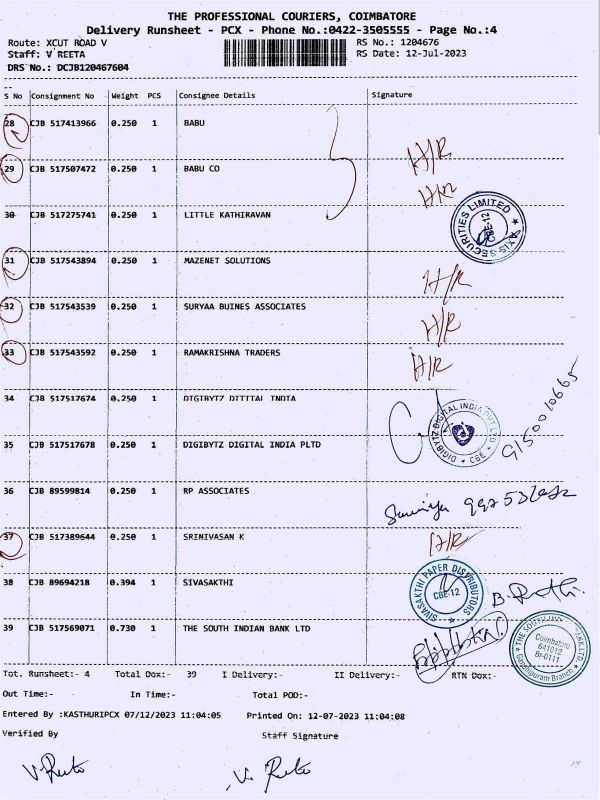 THE PROFESSIONAL COURIERS, COIMBATORE
Delivery Runsheet - PCX - Phone No.:0422-3505555 - Page No.:4
Route: XCUT ROAD V RS No.: 1204676
Staff: V REETA RS Date: 12-Jul-2023
DRS No.: DCJB120467604
S No Consignment No Weight PCS Consignee Details Signature
28 CJB 517413966 0.250 1 BABU H/R
29 CJB 517507472 0.250 1 BABU CO H/R
30 CJB 517275741 0.250 1 LITTLE KATHIRAVAN
AXIS SECURITIES LIMITED CBE-12
31 CJB 517543894 0.250 1 MAZENET SOLUTIONS H/R
32 CJB 517543539 0.250 1 SURYAA BUINES ASSOCIATES H/R
33 CJB 517543592 0.250 1 RAMAKRISHNA TRADERS H/R
34 CJB 517517674 0.250 1 DIGIBYTZ DITITAL INDIA
DIGIBYTZ DIGITAL INDIA PVT LTD CBE
35 CJB 517517678 0.250 1 DIGIBYTZ DIGITAL INDIA PLTD
36 CJB 89599814 0.250 1 RP ASSOCIATES
37 CJB 517389644 0.250 1 SRINIVASAN K H/R
38 CJB 89694218 0.394 1 SIVASAKTHI
SIVASAKTHI PAPER DISTRIBUTORS CBE-12
39 CJB 517569071 0.730 1 THE SOUTH INDIAN BANK LTD
Coimbatore
641012
Br-0111
Gandhipuram Branch
Tot. Runsheet:- 4 Total Dox:- 39 I Delivery:- II Delivery:- RTN Dox:-
Out Time:- In Time:- Total POD:-
Entered By :KASTHURIPCX 07/12/2023 11:04:05 Printed On: 12-07-2023 11:04:08
Verified By Staff Signature